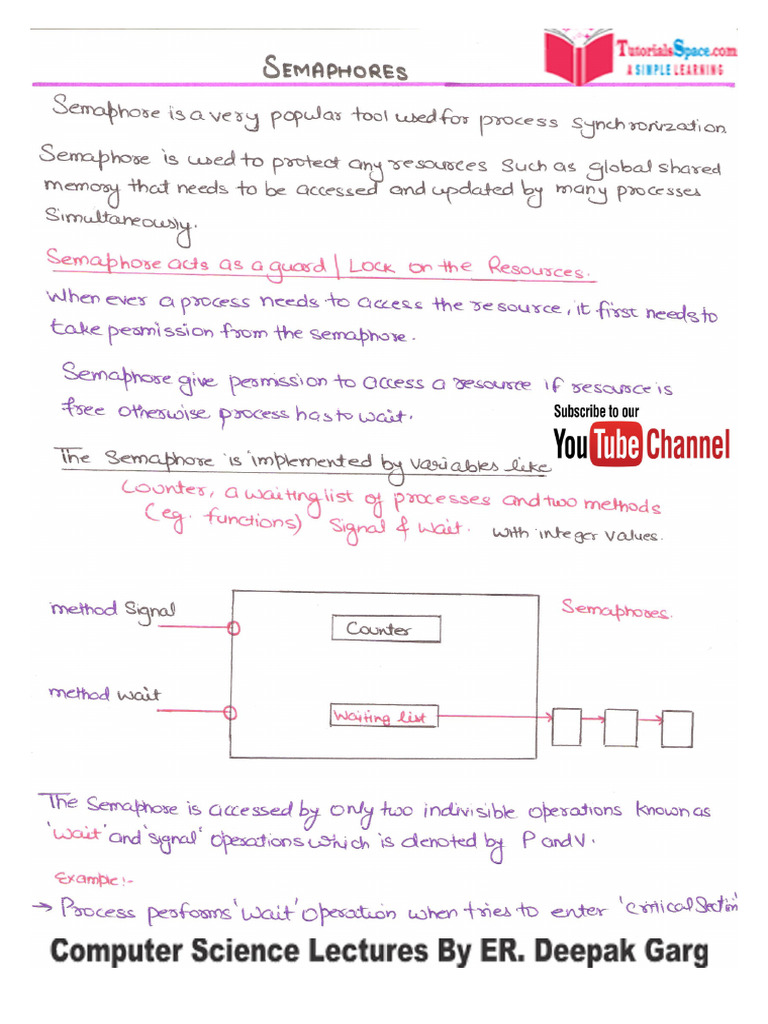 SEMAPHORES
TutorialsSpace.com
A SIMPLE LEARNING
Semaphore is a very popular tool used for process synchronization
Semaphore is used to protect any resources such as global shared
memory that needs to be accessed and updated by many processes
Simultaneously.
Semaphore acts as a guard | Lock on the Resources.
When ever a process needs to access the resource, it first needs to
take permission from the semaphore.
Semaphore give permission to access a resource if resource is
free otherwise process has to wait.
Subscribe to our
YouTube Channel
The Semaphore is implemented by variables like
Counter, a waiting list of processes and two methods
(eg. functions) Signal & Wait. with integer values.
method Signal
Counter
Semaphores.
method wait
Waiting list
The Semaphore is accessed by only two indivisible operations known as
'wait' and 'signal' operations which is denoted by P and V.
Example:-
→ Process performs 'wait' operation when tries to enter 'critical Section'
Computer Science Lectures By ER. Deepak Garg